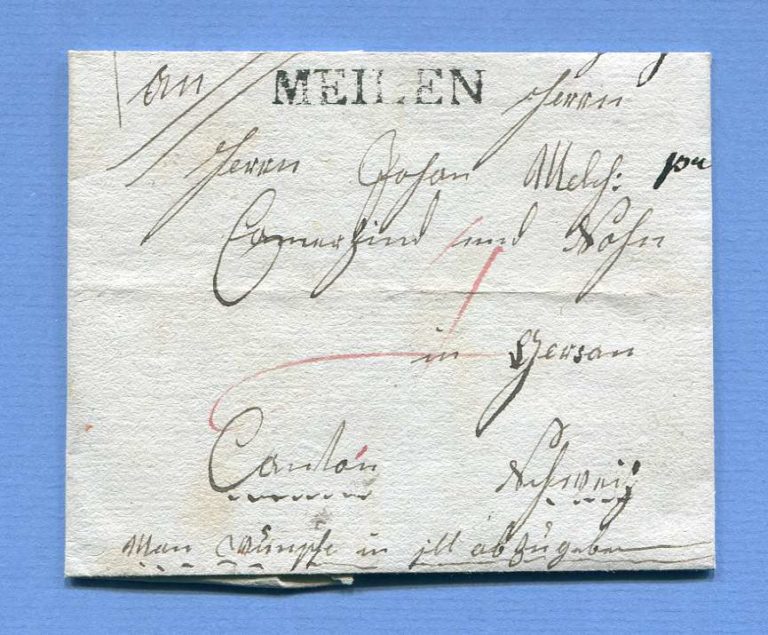 An MEILEN Herrn
Herrn Johan Melch:
Camerzind und Sohn
in Gersau
Canton Schweiz
Man wünscht in abzugeben